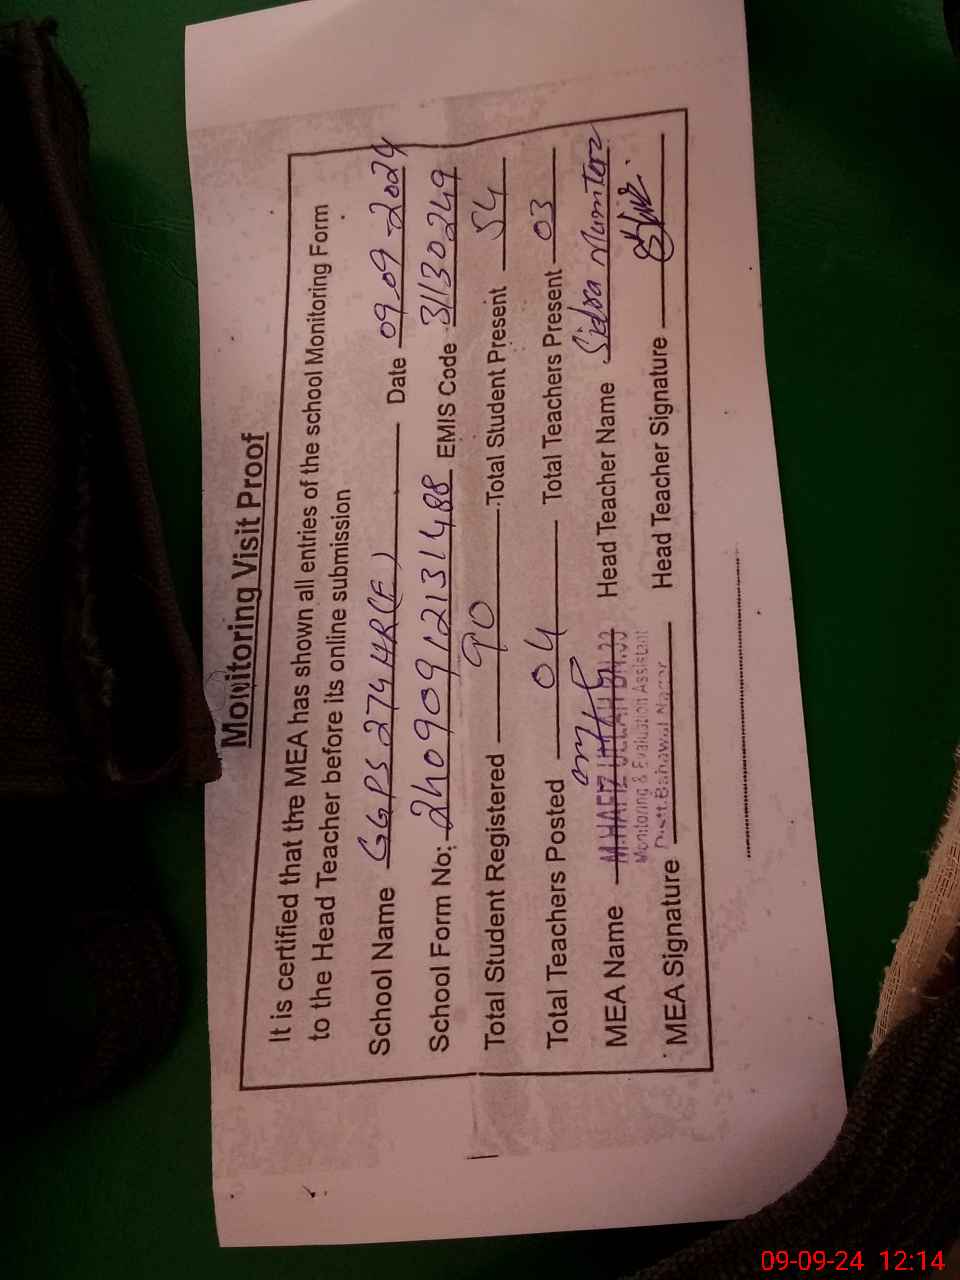 Monitoring Visit Proof
It is certified that the MEA has shown all entries of the school Monitoring Form
to the Head Teacher before its online submission
School Name GGPS 274HR(F) Date 09-09-2024
School Form No: 24090912131488 EMIS Code 31130249
Total Student Registered 90 Total Student Present 54
Total Teachers Posted 04 Total Teachers Present 03
MEA Name M.HAFIZ ULLAH Head Teacher Name Sidra Mumtaz
Monitoring & Evaluation Assistant
Distt. Bahawal Nagar
MEA Signature Head Teacher Signature
09-09-24 12:14